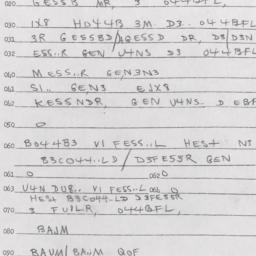 020 GESSB MR, 3 044BFL,
030 1X8 HD44B 3M D3.. 044BFL
031 3R GESSBD/AGESSD DR, D3/D3N
032 ESS..R GEN U4NS D3 044BFL
040 MESS..R GEN3N3
041 S1.. GEN3 EJX8
042 KESSNDR, GEN U4NS D EBF
050 0
060 B044B3 VI FESS..L HEST NI
B3C044..LD / D3FESSR GEN
061 0 062 0
063 U4N DUB.. VI FESS..L 064 0
HEST B3C044..LD D3FESSR
070 3 FU1LR, 044BFL,
080 BAJM
090 BAVM/BAJM QOF